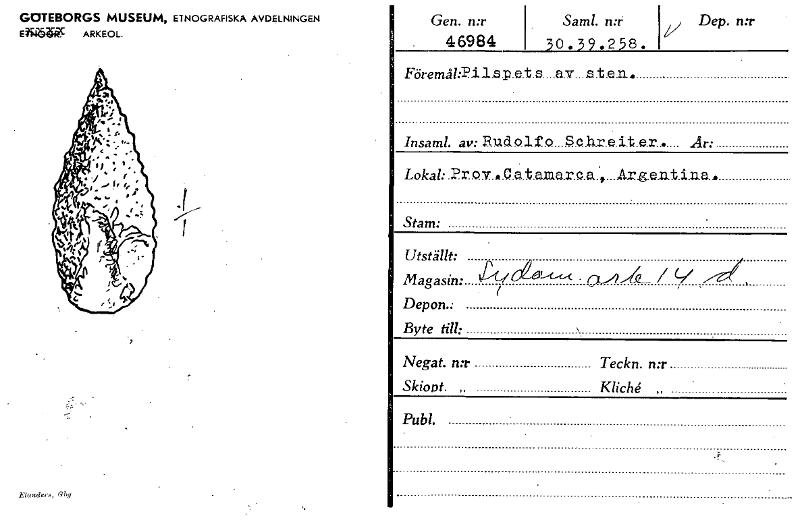 GÖTEBORGS MUSEUM, ETNOGRAFISKA AVDELNINGEN
ETNOGR. ARKEOL.
1/1
Elanders, Gbg
Gen. n:r Saml. n:r Dep. n:r
46984 30.39.258.
Föremål: Pilspets av sten.
Insaml. av: Rudolfo Schreiter. År:
Lokal: Prov. Catamarca, Argentina.
Stam:
Utställt:
Magasin: Sydam. ark 14 d.
Depon.:
Byte till:
Negat. n:r Teckn. n:r
Skiopt. „ Kliché „
Publ.